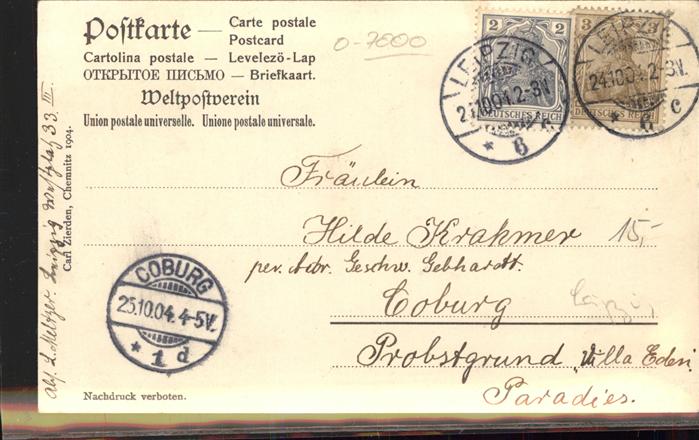 Postkarte — Carte postale
Postcard
Cartolina postale — Levelezö-Lap
ОТКРЫТОЕ ПИСЬМО — Briefkaart.
Weltpostverein
Union postale universelle. Unione postale universale.
0-7000
2 2
DEUTSCHES REICH
3 3
DEUTSCHES REICH
LEIPZIG
24.10.04.2-3V.
* 6
LEIPZIG
24.10.04.2-3V.
* 6 c
Fräulein
Hilde Krakmer
15,-
per. Adr. Geschw. Gebhardt.
Coburg
Leipzig
Probstgrund Villa Eden
Paradies.
COBURG
25.10.04.4-5V.
* 1 d
Abs. L. Metzger. Leipzig 33 III.
Carl Zierden, Chemnitz 1904.
Nachdruck verboten.